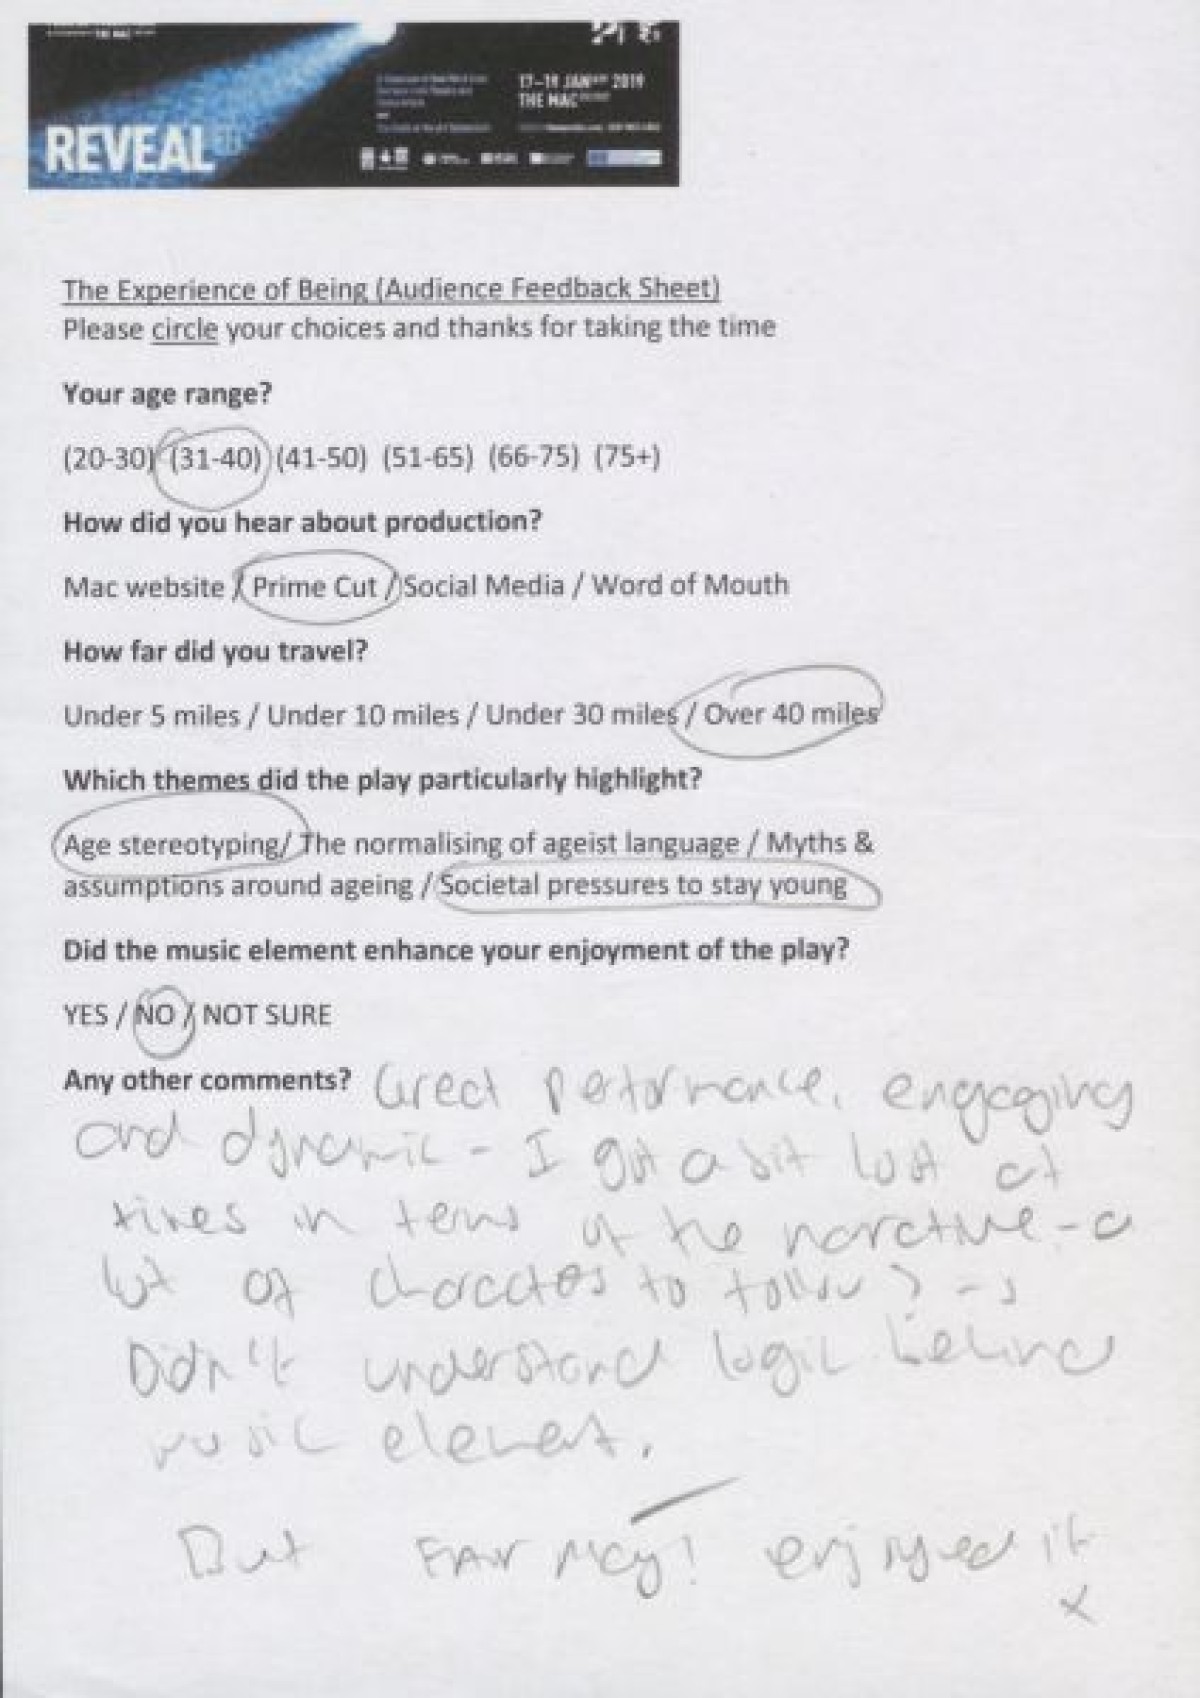 REVEAL
17-19 JAN 2019
THE MAC
The Experience of Being (Audience Feedback Sheet)
Please circle your choices and thanks for taking the time
Your age range?
(20-30) (31-40) (41-50) (51-65) (66-75) (75+)
How did you hear about production?
Mac website / Prime Cut / Social Media / Word of Mouth
How far did you travel?
Under 5 miles / Under 10 miles / Under 30 miles / Over 40 miles
Which themes did the play particularly highlight?
Age stereotyping/ The normalising of ageist language / Myths &
assumptions around ageing / Societal pressures to stay young
Did the music element enhance your enjoyment of the play?
YES / NO / NOT SURE
Any other comments? Great performance, engaging
and dynamic - I got a bit lost at
times in terms of the narrative - a
lot of characters to follow? - I
Didn't understand logic behind
music element.
But enjoyed it
x